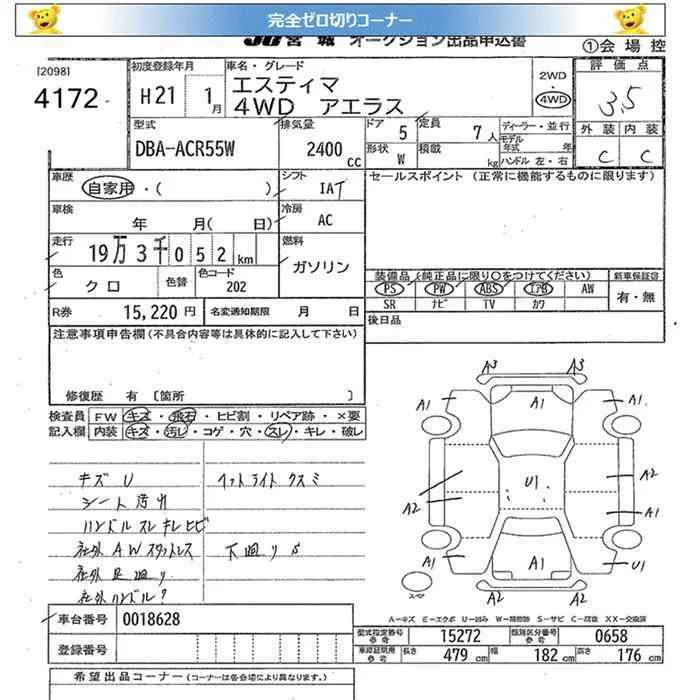 完全ゼロ切りコーナー
JU宮城 オークション出品申込書
①会場控
[2098]
4172
初度登録年月
H21 1月
車名・グレード
エスティマ
4WD アエラス
2WD
・
4WD
評価点
3.5
外装 内装
C C
型式
DBA-ACR55W
排気量
2400 cc
ドア 5
形状 W
定員 7人
積載 kg
ディーラー・並行
モデル年式 年
ハンドル 左・右
車歴
自家用・( )
シフト
IAT
セールスポイント (正常に機能するものに限ります)
車検
年 月( 日)
冷房
AC
走行
19万3千052km
燃料
ガソリン
色
クロ
色替
色コード
202
装備品 (純正品に限り○をつけてください)
PS PW ABS エアB AW
SR ナビ TV カワ
新車保証書
有・無
R券 15,220円
名変通知期限 月 日
後日品
注意事項申告欄(不具合内容等は具体的に記入して下さい)
修復歴 有 [箇所 ]
検査員 FW キズ・飛石・ヒビ割・リペア跡・×要
記入欄 内装 キズ・汚レ・コゲ・穴・スレ・キレ・破レ
キズ U
シート汚れ
ハンドル スレ キレ ヒビ
社外AWスタットレス
社外足廻り
社外ハンドル?
ヘットライトクスミ
下廻りS
A3 A3
A1 A1 A1
A2 U1 A2
A1
A1 A1 U1
A2 A2
スペア
A-キズ E-エクボ U-凹み W-補修跡 S-サビ C-腐食 XX-交換済
車台番号 0018628
登録番号
型式指定番号 参考 15272
類別区分番号 参考 0658
車庫証明用 参考 長さ 479cm 幅 182cm 高さ 176cm
希望出品コーナー(コーナーは各会場により異なります。)